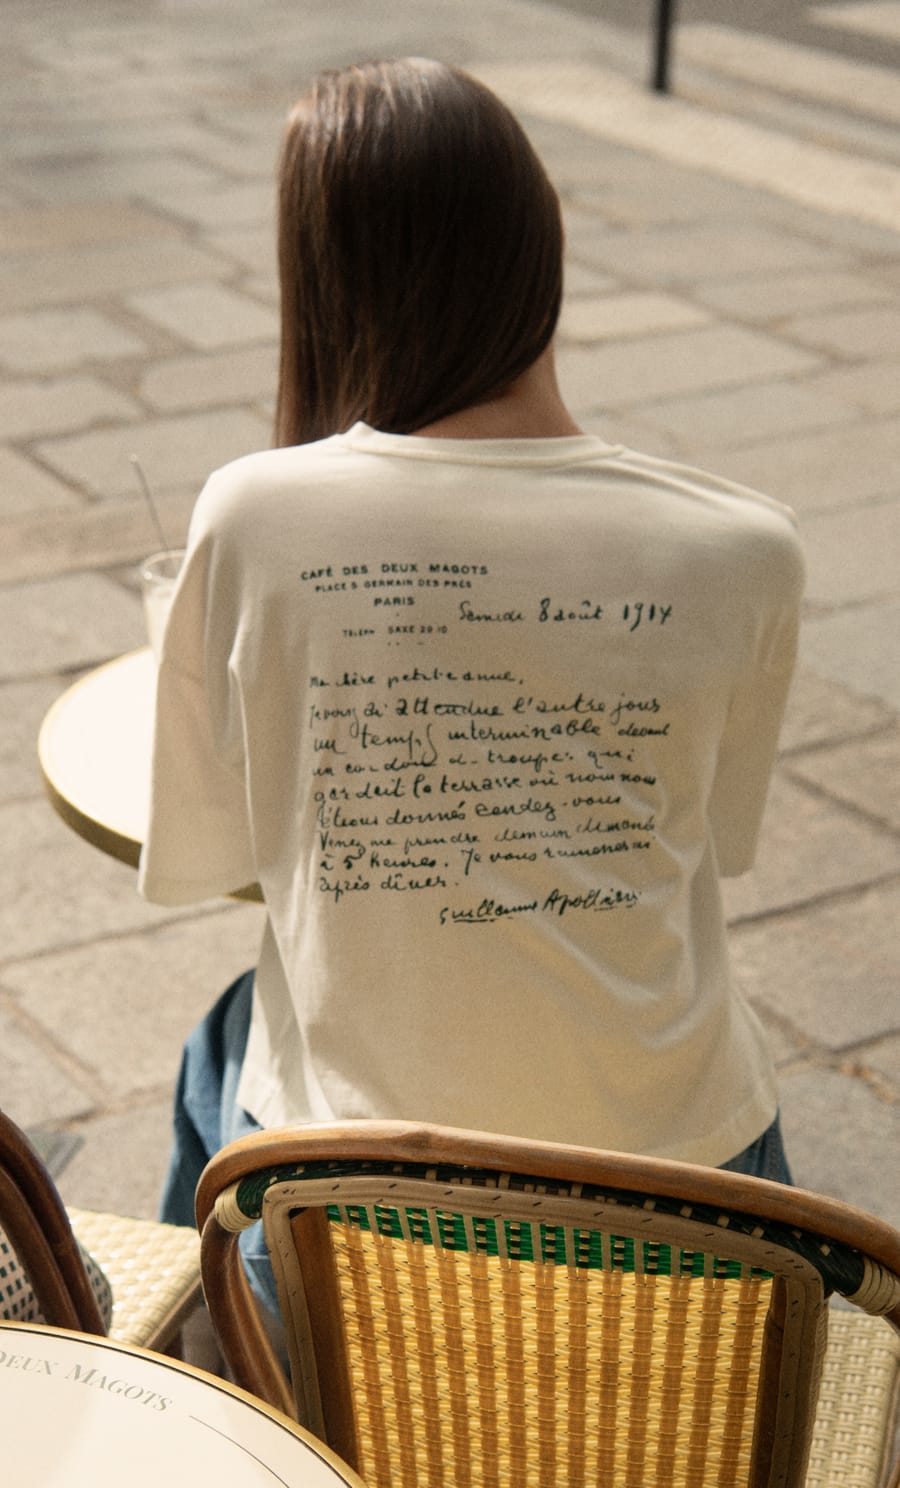 CAFÉ DES DEUX MAGOTS
PLACE S GERMAIN DES PRÉS
PARIS
TELEPH SAXE 20 10
Samedi 8 août 1914
Ma chère petite amie,
Je vous ai attendue l'autre jour
un temps interminable devant
un cordon de troupes qui
gardait la terrasse où nous nous
étions donnés rendez-vous
Venez me prendre demain dimanche
à 5 heures. Je vous ramènerai
après dîner.
Guillaume Apollinaire
DEUX MAGOTS